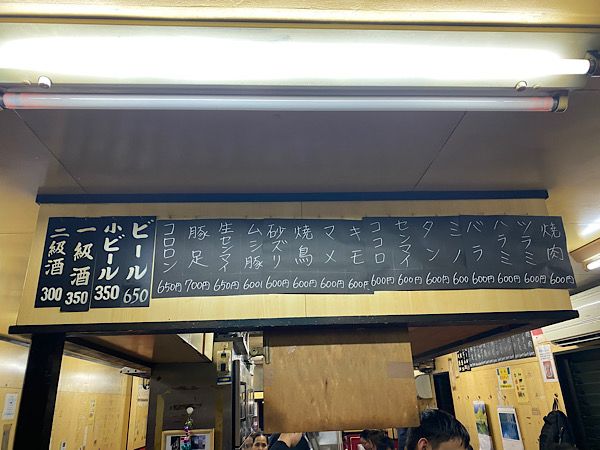 焼肉 600円
ツラミ 600円
ハラミ 600円
バラ 600円
ミノ 600
タン 600円
センマイ 600円
ココロ 600円
キモ 600円
マメ 600円
焼鳥 600円
砂ズリ 600円
ムシ豚 600
生センマイ 650円
豚足 700円
コロロン 650円
ビール 650
小ビール 350
一級酒 350
二級酒 300